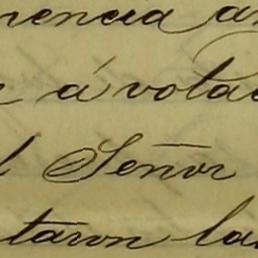 nencia an
e á votac
l Señor
taron la